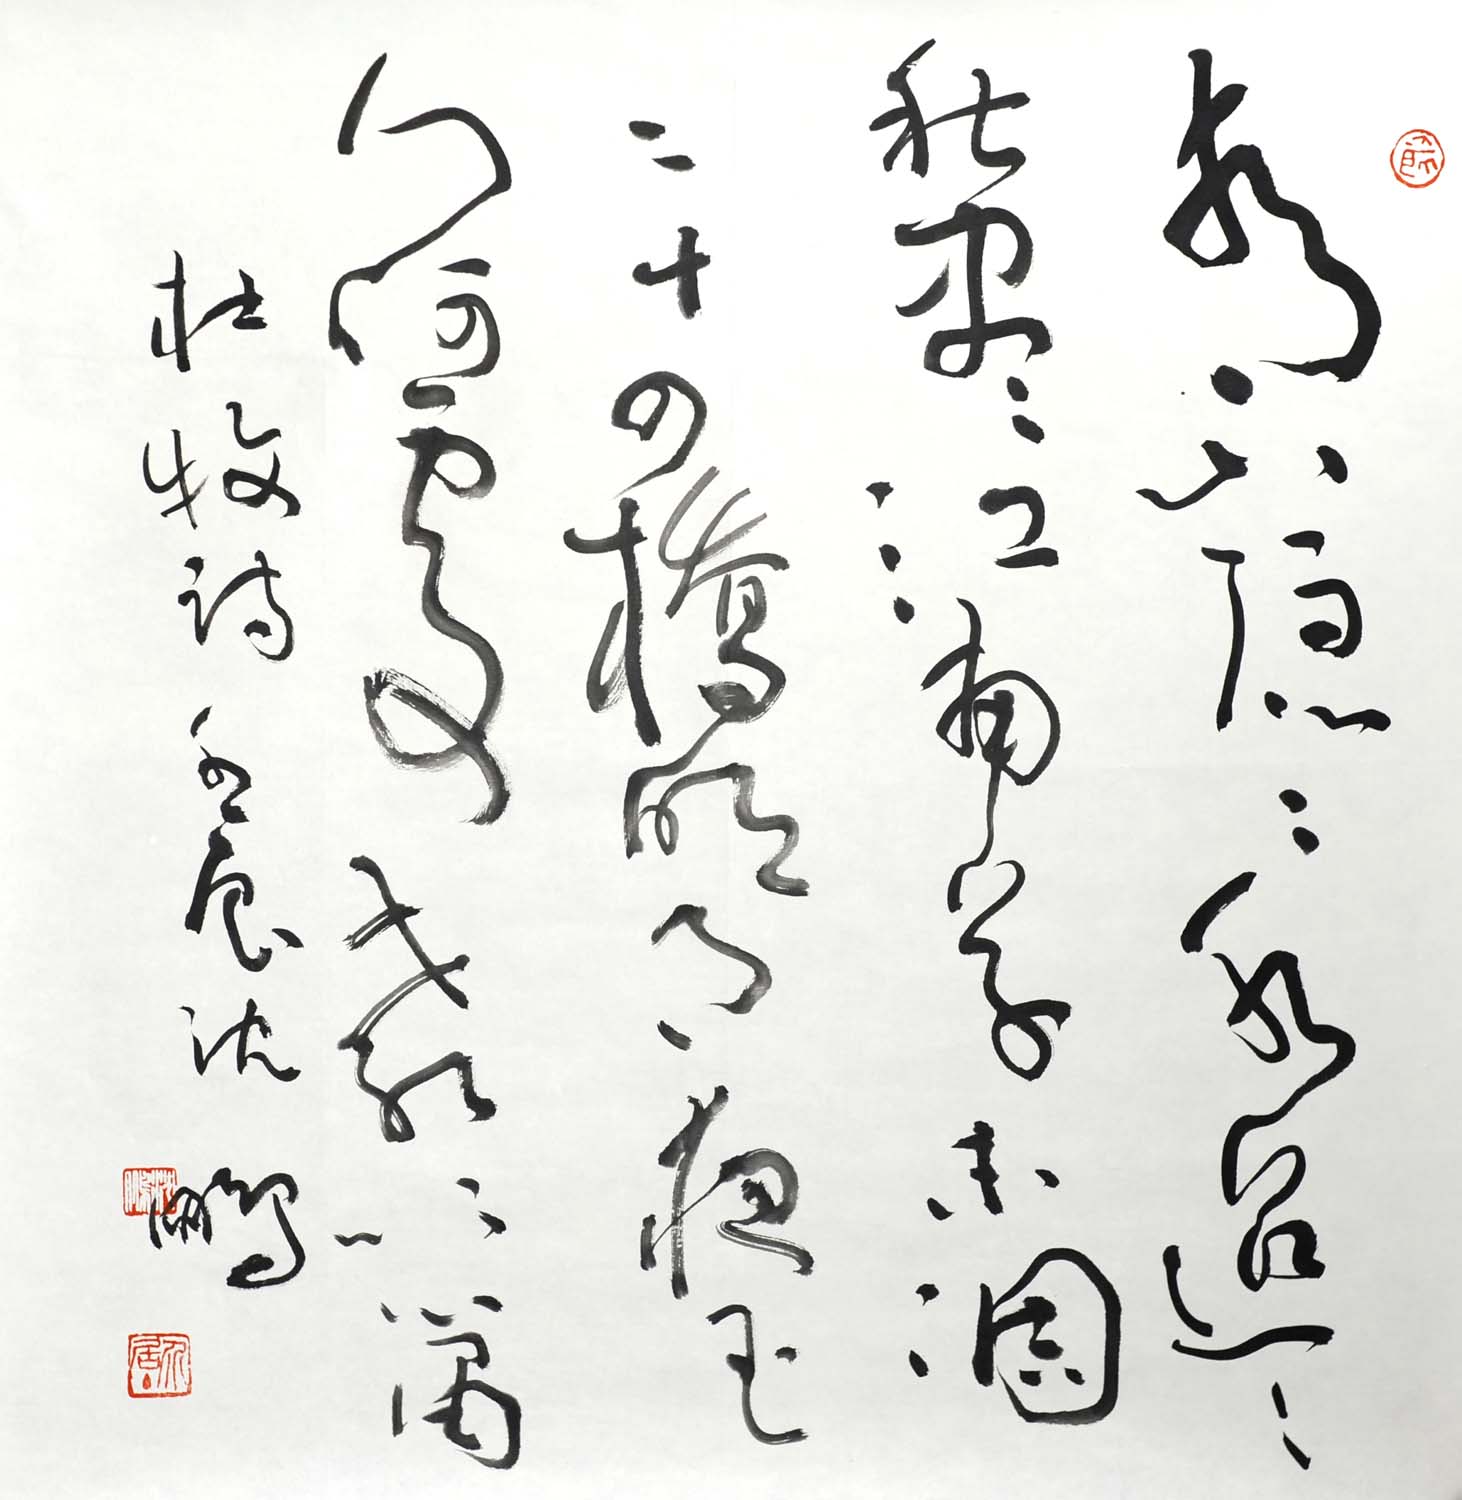 青山隱〻水迢〻
秋盡江南草未凋
二十四橋明月夜玉
人何處教吹簫
杜牧詩 壬辰 沈鵬